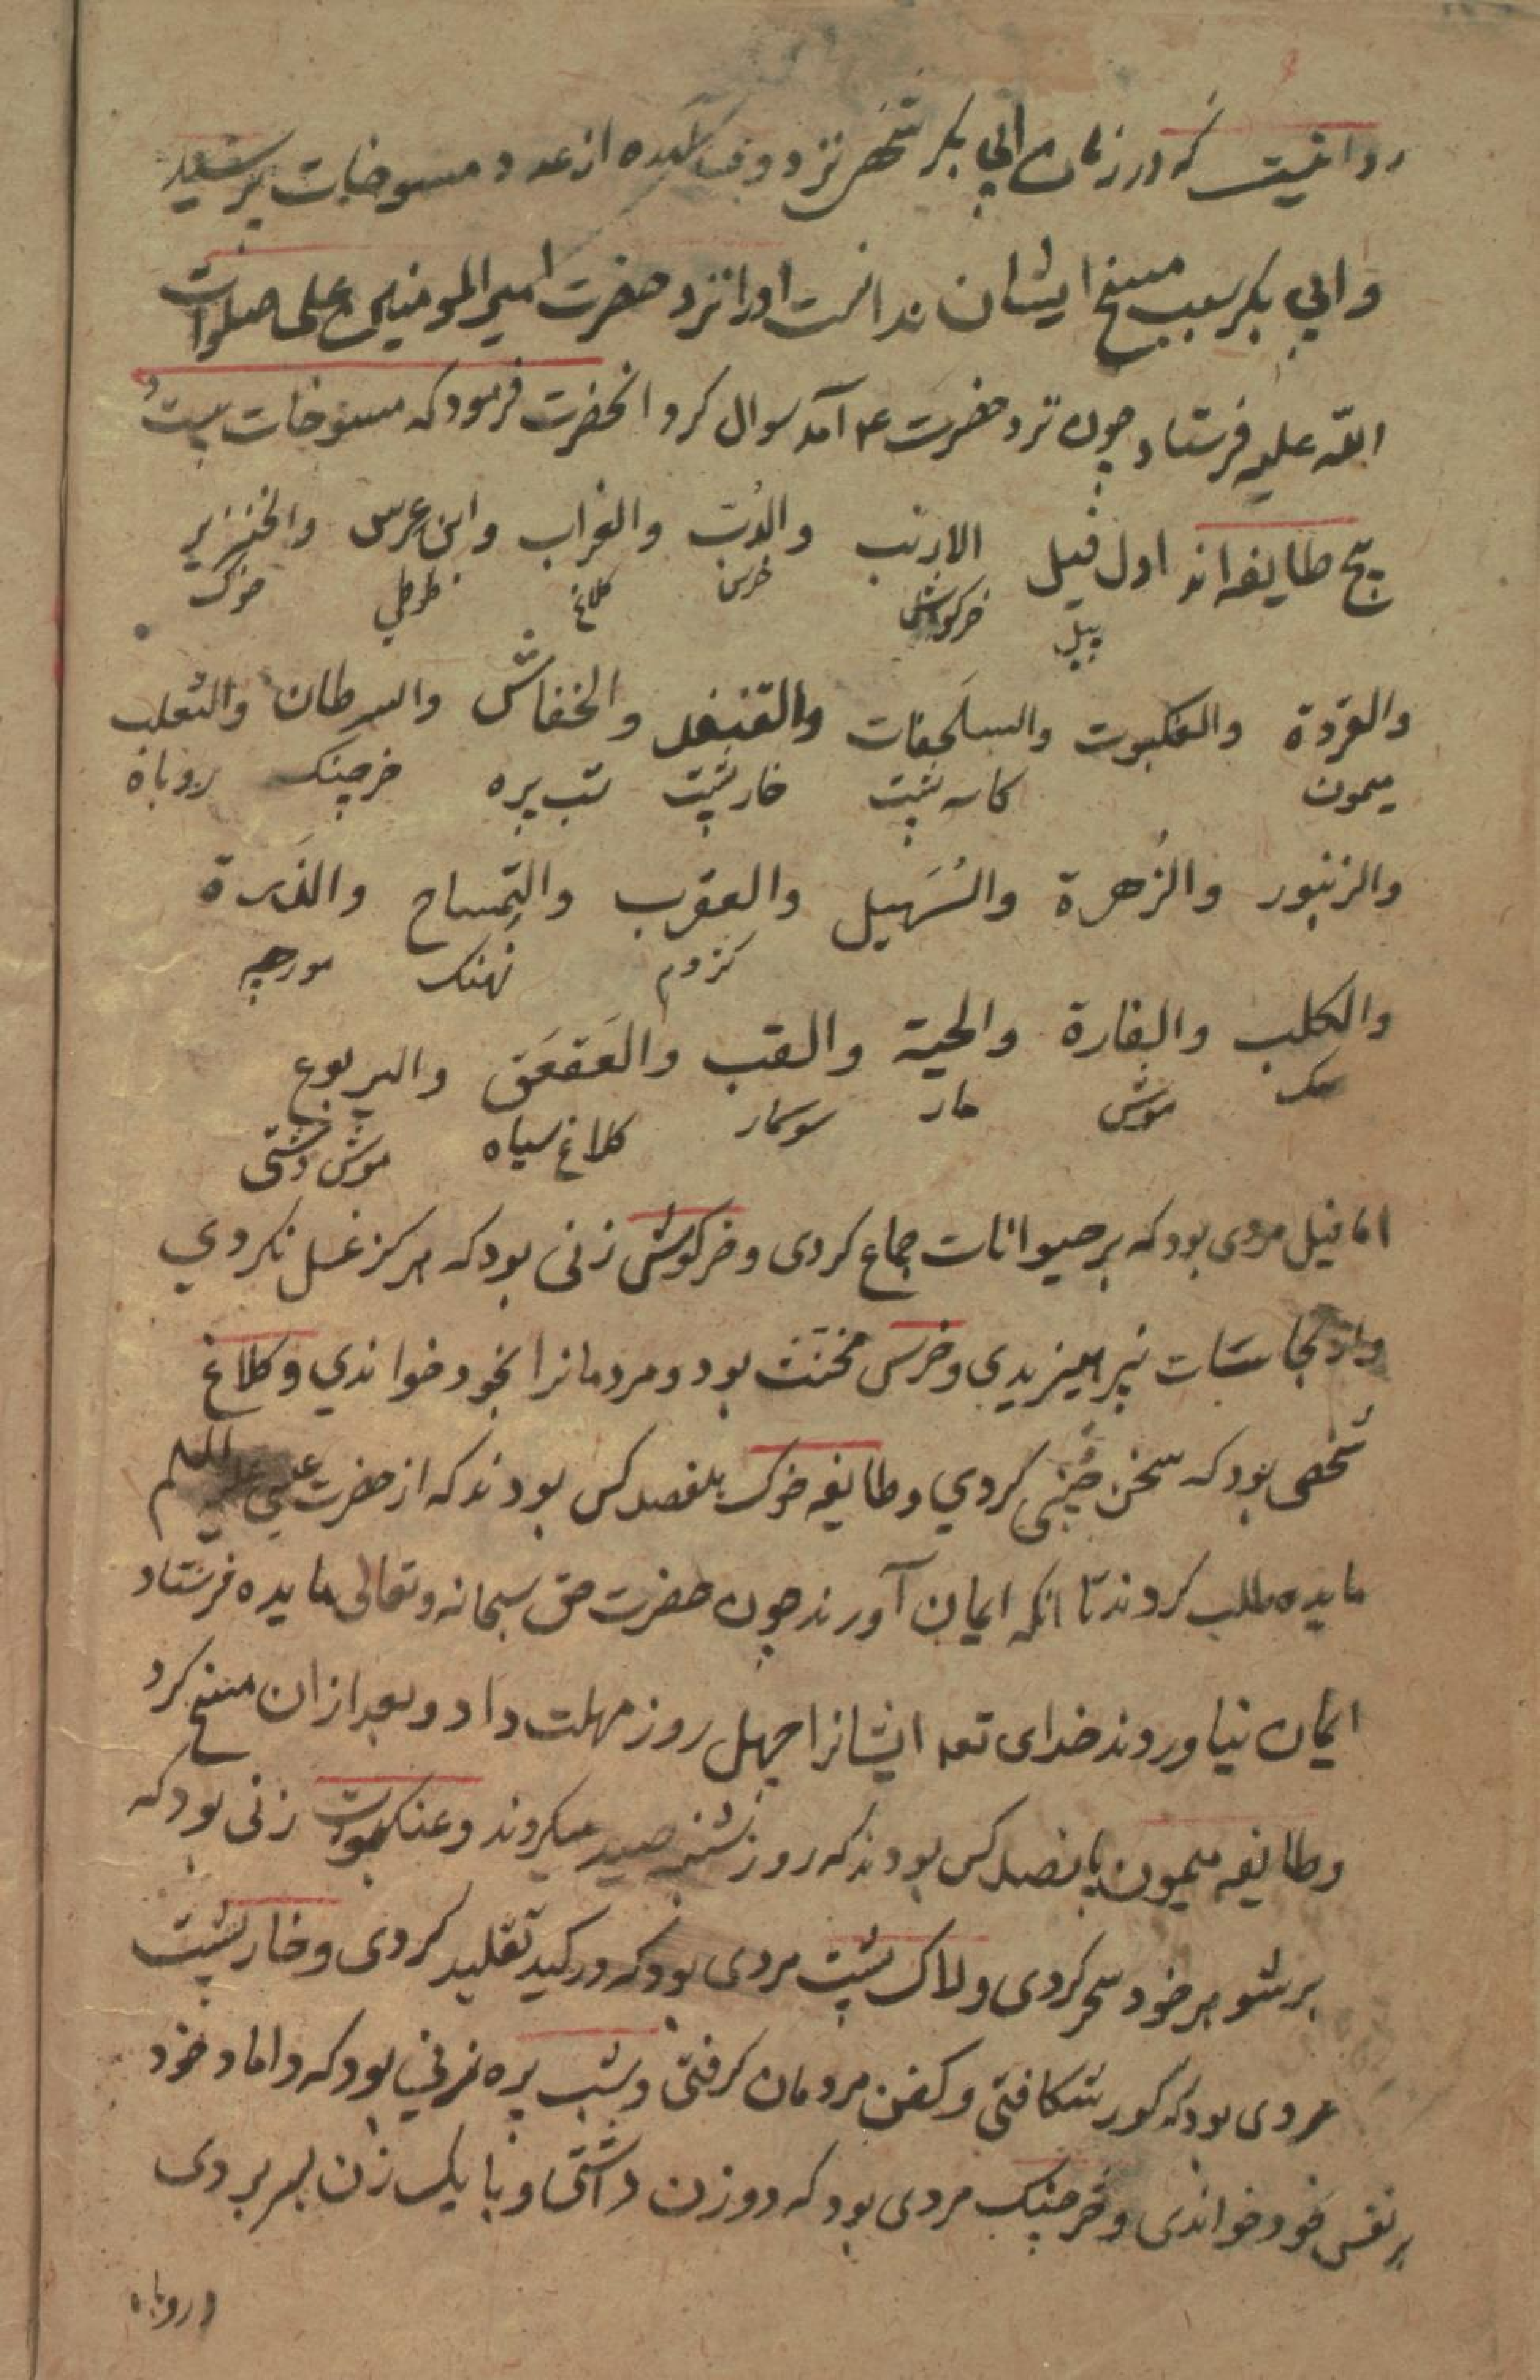 روایتست که در زمان ابی بکر شخصی نزد وی آمده از عدد مسوخات پرسید
و ابی بکر سبب مسخ ایشان ندانست او را نزد حضرت امیر المومنین علی صلوات
الله علیه فرستاد چون نزد حضرت ع آمد سوال کرد انحضرت فرمود که مسوخات بیست
پنج طایفه اند اول فیل الارنب والدُب والغراب وابن عرس والخنزیر
پیل خرکوش خرس کلاغ خوک
والقردة والعنکبوت والسلَحفات والقنفد والخفاش والسرطان والثعلب
میمون کاسه پشت خار پشت شب پره خرچنک روباه
والزنبور والزُهرة والسُهَیل والعقرب والتِمساح والذَرة
کژدم نهنک مورچه
والکلب والفارة والحیة والضب والعَقعَق والیربوع
سک موش مار سوسمار کلاغ سیاه موش دشتی
اما فیل مردی بود که بر حیوانات جماع کردی و خرکوش زنی بود که هرکز غسل نکردی
و از نجاسات نپرهیزیدی و خرس مخنث بود و مردمانرا بخود خواندی و کلاغ
شخصی بود که سخن چینی کردی و طایفه خوک کس بودند که از حضرت عیسی علیه السلم
مایده طلب کردند تا انکه ایمان آورند چون حضرت حق سبحانه و تعالی مایده فرستاد
ایمان نیاوردند خدای تعه ایشانرا چهل روز مهلت داد و بعد ازان مسخ کرد
و طایفه میمون پانصد کس بودند که روز شنبه صید میکردند و عنکبوت زنی بود که
بر شوهر خود سحر کردی و لاک پشت مردی بود که در کید تقلید کردی و خار پشت
مردی بود که کور شکافتی و کفن مردمان کرفتی و شب پره زنی بود که داماد خود
بر نفس خود خواندی و خرچنک مردی بود که دو زن داشتی و با یک زن بسر بردی
و روباه